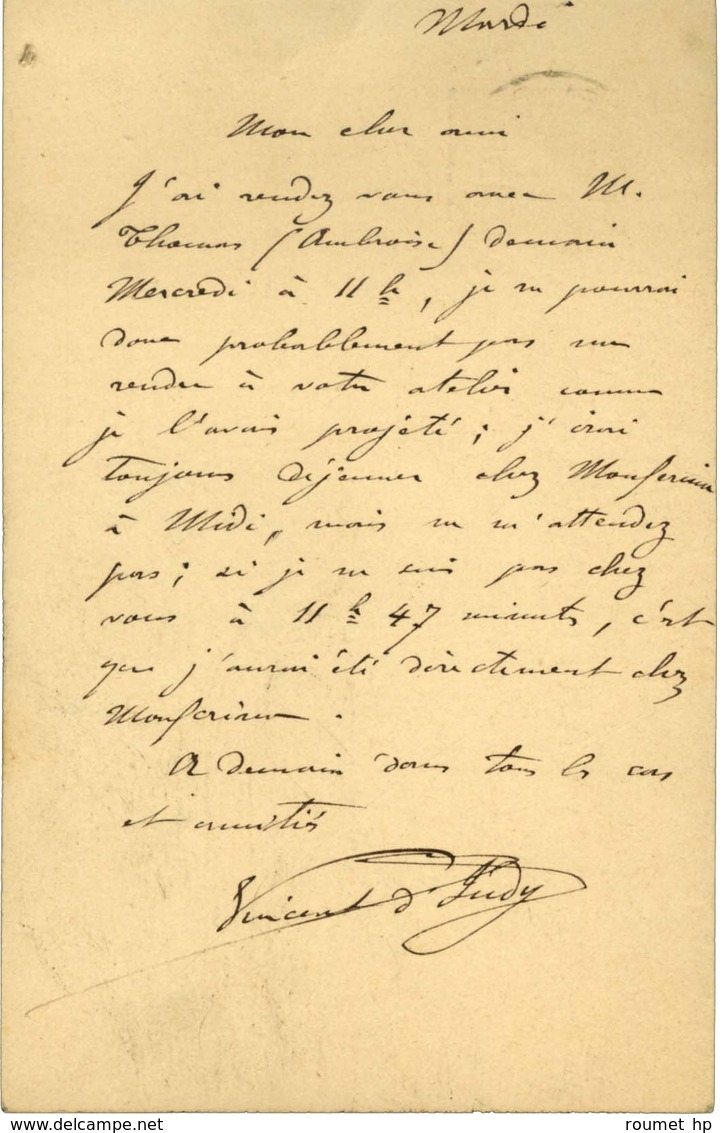 Mardi
Mon cher ami
J'ai rendez vous avec M.
Thomas (Ambroise) demain
Mercredi à 11 h, je ne pourrai
donc probablement pas me
rendre à votre atelier comme
je l'avais projeté ; j'irai
toujours déjeuner chez
à Midi, mais ne m'attendez
pas ; si je ne suis pas chez
vous à 11 h 47 minutes, c'est
que j'aurai été directement chez
A demain dans tous les cas
et amitiés
Vincent d'Indy
delcampe.net
roumet hp